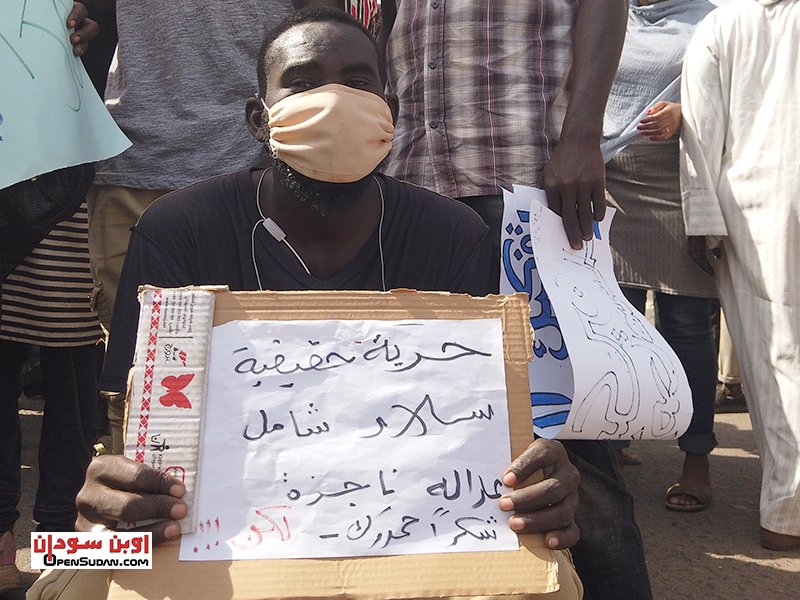 حرية حقيقية
سلام شامل
عدالة ناجزة
شكراً حمدوك - لكن !!!
اوبن سودان
OPENSUDAN.COM